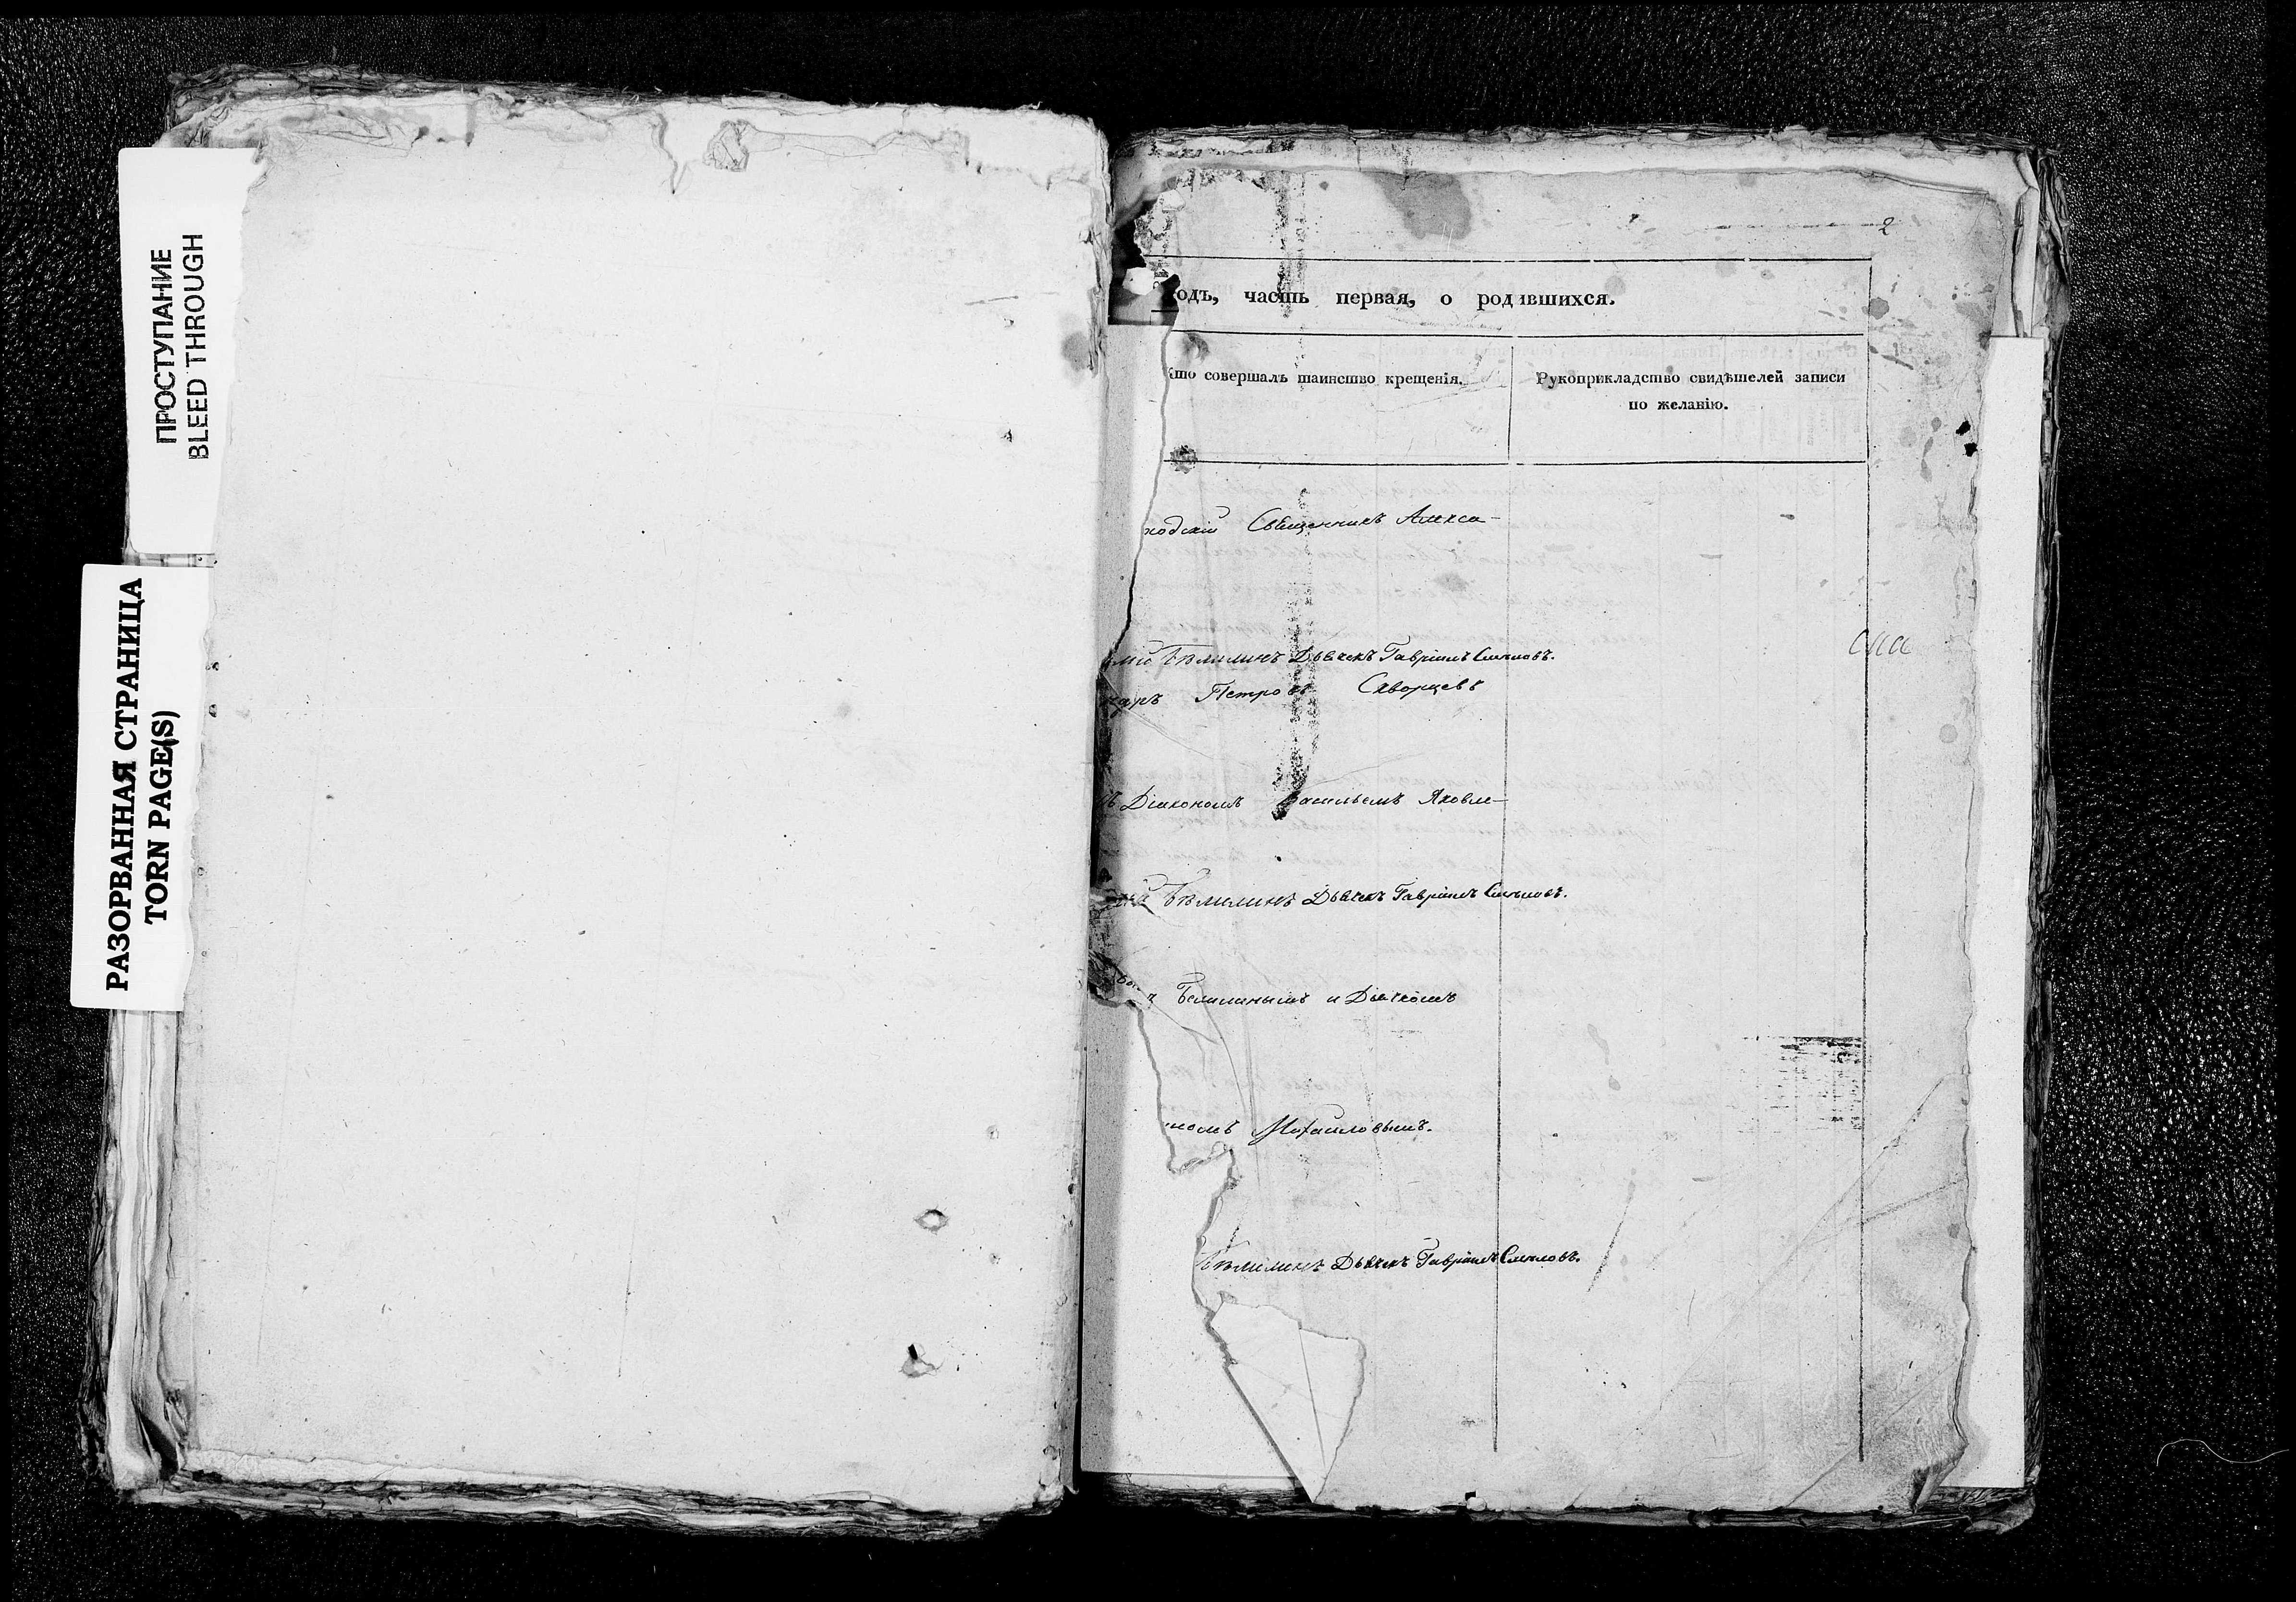 ПРОСТУПАНИЕ
BLEED THROUGH
РАЗОРВАННАЯ СТРАНИЦА
TORN PAGE(S)
2
одъ, часть первая, о родившихся.
Кто совершалъ таинство крещенія.
Рукоприкладство свидѣтелей записи
по желанію.
ходскій Священникъ Алекса-
Бѣлилинъ Дьячекъ Гавріилъ
Петровъ Скворцевъ
Діакономъ Васильемъ Яковле-
Бѣлилинъ Дьячекъ Гавріилъ
Белилинымъ и Дьячкомъ
Михаиловымъ.
Бѣлилинъ Дьячекъ Гавріилъ